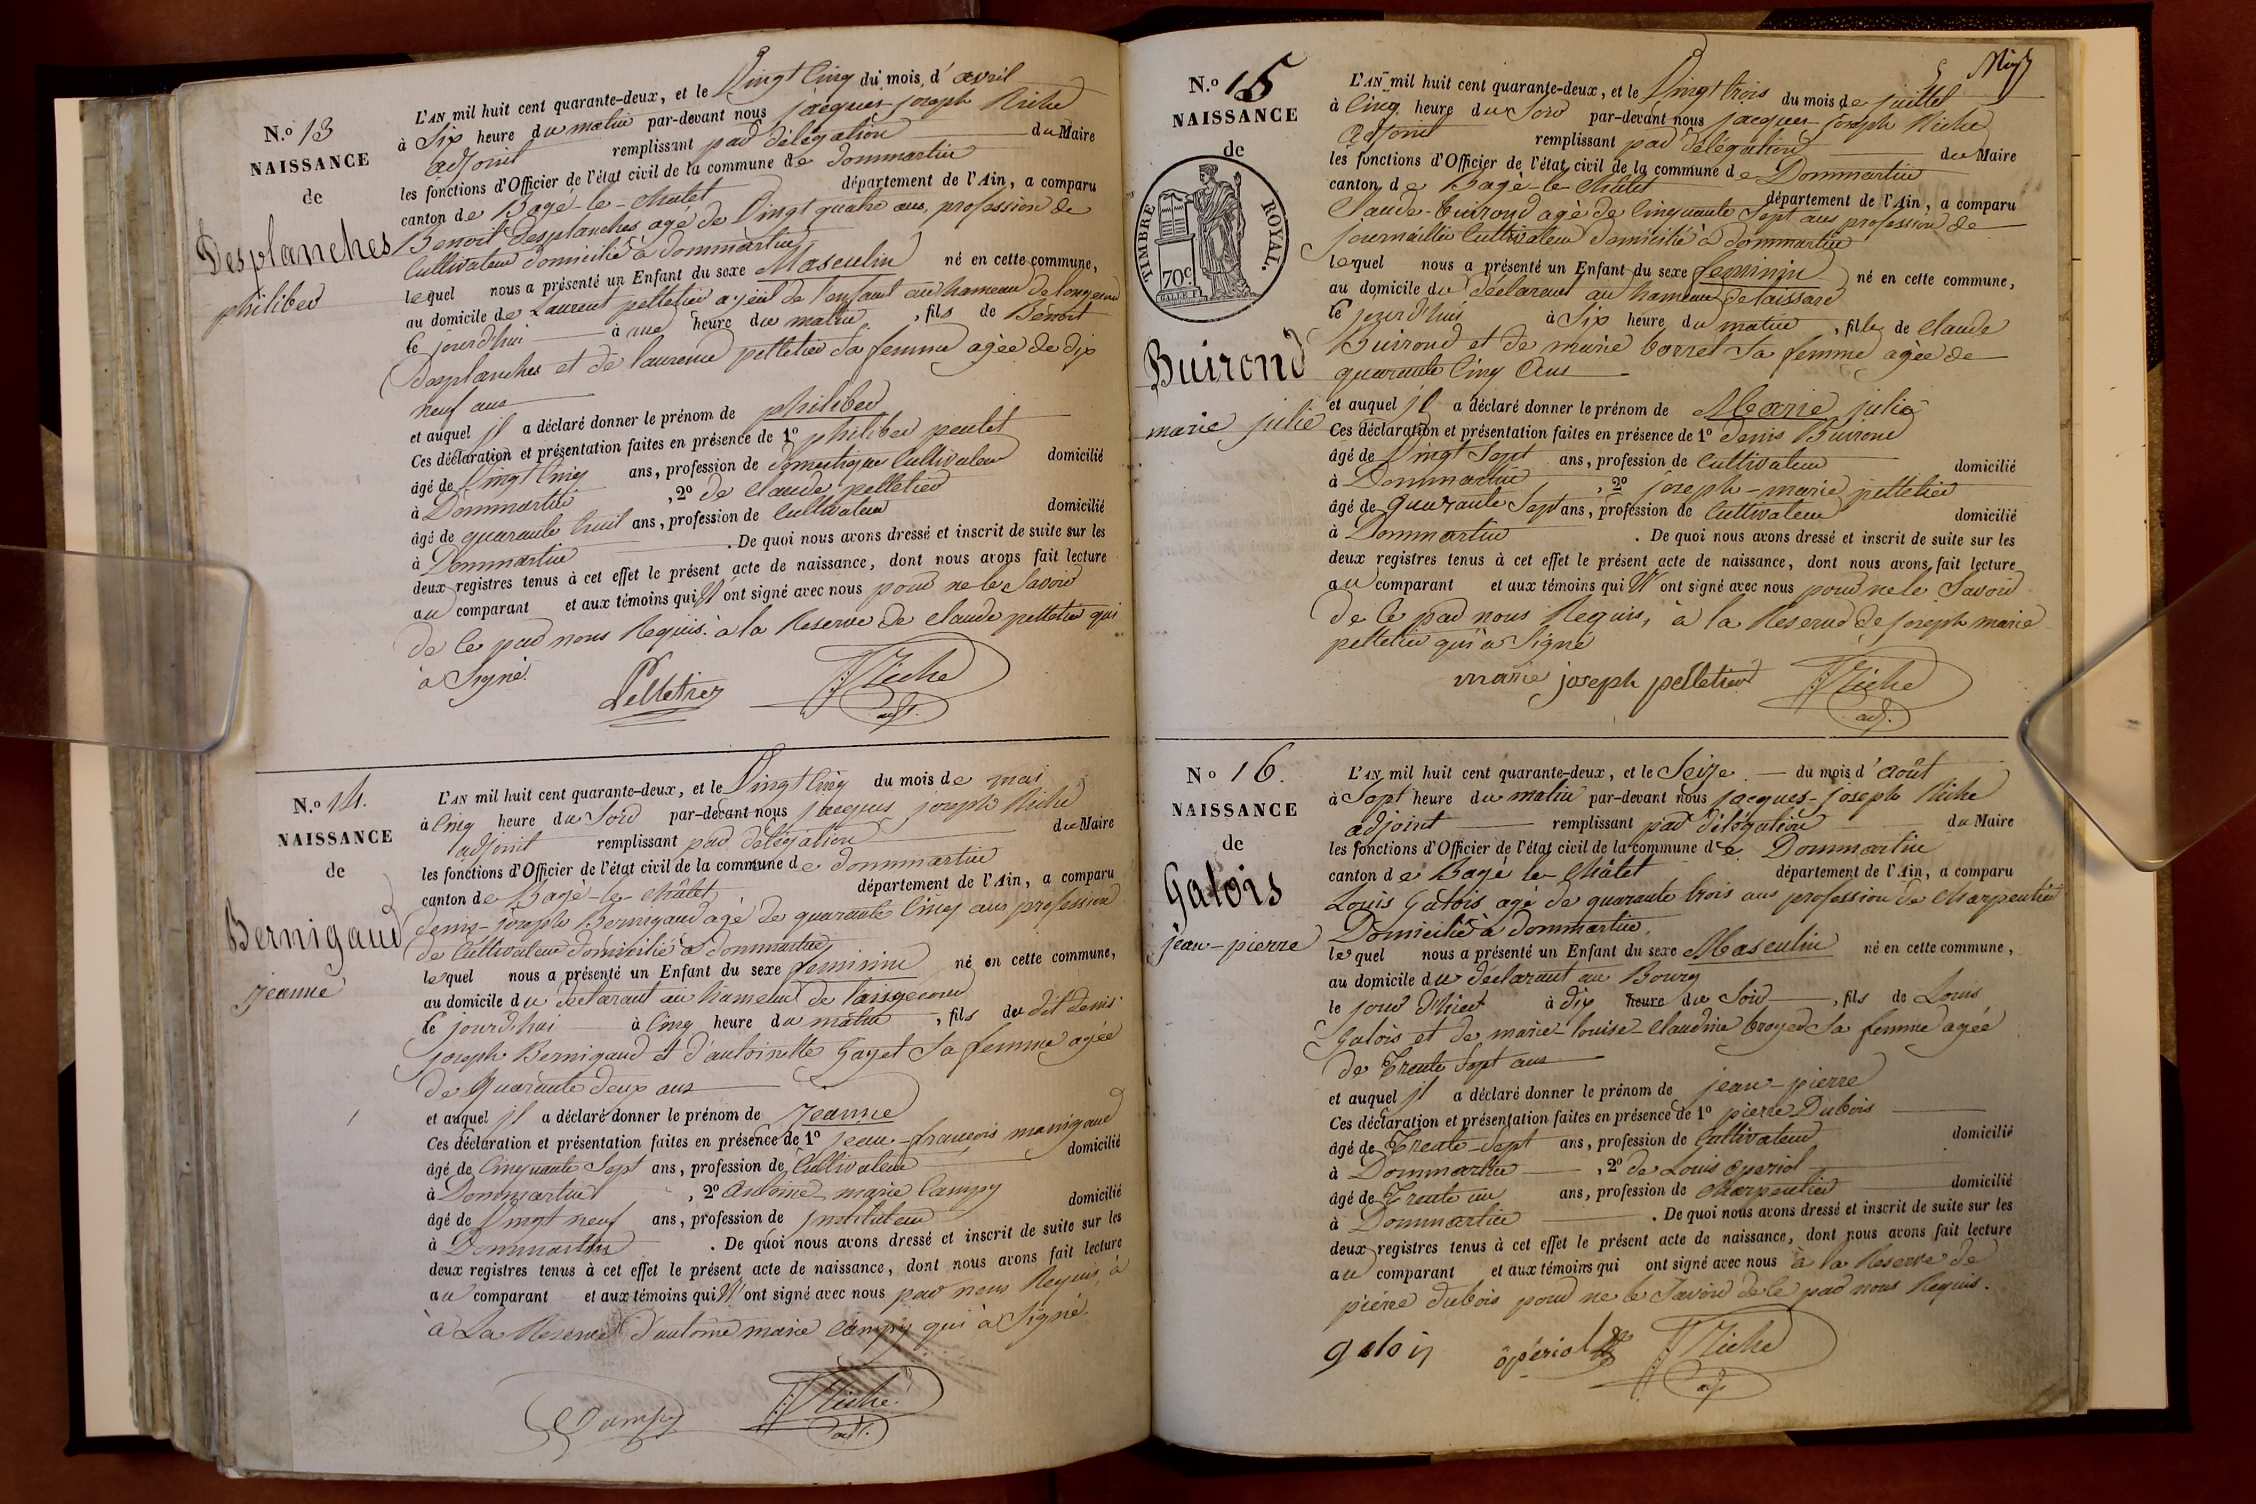 N.o 13
NAISSANCE
de
Desplanches
philiber
L'AN mil huit cent quarante-deux, et le Vingt Cinq du mois d'avril
à Six heure du matin par-devant nous jacques joseph Riche
adjoint remplissant par délégation du Maire
les fonctions d'Officier de l'état civil de la commune de Dommartin
canton de Bagé-le-Chatel département de l'Ain, a comparu
Benoit Desplanches agé de Vingt quatre ans, profession de
Cultivateur domicilié à dommartin
lequel nous a présenté un Enfant du sexe Masculin né en cette commune,
au domicile de Laurent pelletier ayeul de l'enfant au hameau de
le jourd'hui à une heure du matin, fils de Benoit
Desplanches et de laurence pelletier Sa femme agée de dix
neuf ans
et auquel jl a déclaré donner le prénom de philiber
Ces déclaration et présentation faites en présence de 1o philiber peulet
âgé de Vingt Cinq ans, profession de domestique Cultivateur domicilié
à Dommartin, 2o de Claude pelletier
âgé de quarante huit ans, profession de Cultivateur domicilié
à Dommartin . De quoi nous avons dressé et inscrit de suite sur les
deux registres tenus à cet effet le présent acte de naissance, dont nous avons fait lecture
au comparant et aux témoins qui N'ont signé avec nous pour ne le Savoir
de Ce par nous Requis. à la Reserve de Claude pelletier qui
à Signé.
Pelletier JJRiche
adj.
N.o 14.
NAISSANCE
de
Bernigaud
Jeanne
L'AN mil huit cent quarante-deux, et le Vingt Cinq du mois de mai
à Cinq heure du Soir par-devant nous jacques joseph Riche
adjoint remplissant par délégation du Maire
les fonctions d'Officier de l'état civil de la commune de dommartin
canton de Bagé-le-Châtel département de l'Ain, a comparu
denis-joseph Bernigaud agé de quarante Cinq ans profession
de Cultivateur domicilié à dommartin
lequel nous a présenté un Enfant du sexe feminin né en cette commune,
au domicile du déclarant au hameau de
le jourd'hui à Cinq heure du matin, fils du dit denis
joseph Bernigaud et d'antoinette Gayet Sa femme agée
de Quarante deux ans
et auquel jl a déclaré donner le prénom de Jeanne
Ces déclaration et présentation faites en présence de 1o jean-francois manigaud
âgé de Cinquante Sept ans, profession de Cultivateur domicilié
à Dommartin, 2o antoine marie Campy
âgé de Vingt neuf ans, profession de jnstituteur domicilié
à Dommartin . De quoi nous avons dressé et inscrit de suite sur les
deux registres tenus à cet effet le présent acte de naissance, dont nous avons fait lecture
au comparant et aux témoins qui N'ont signé avec nous par nous Requis, à
à La Reserve d'antoine marie Campy qui à Signé.
Campy JJRiche
adj.
N.o 15
NAISSANCE
de
TIMBRE ROYAL.
70c.
Buirond
marie julie
L'AN mil huit cent quarante-deux, et le Vingt trois du mois de juillet
à Cinq heure du Soir par-devant nous jacques joseph Riche
adjoint remplissant par délégation du Maire
les fonctions d'Officier de l'état civil de la commune de Dommartin
canton de Bagé-le-Châtel département de l'Ain, a comparu
Claude Buirond agé de Cinquante Sept ans profession de
journaillier Cultivateur domicilié à dommartin
lequel nous a présenté un Enfant du sexe feminin né en cette commune,
au domicile du déclarant au hameau
le jourd'hui à Six heure du matin, fille de Claude
Buirond et de marie borrel Sa femme agée de
quarante Cinq Ans
et auquel jl a déclaré donner le prénom de Marie julie
Ces déclaration et présentation faites en présence de 1o denis Buirond
âgé de Vingt Sept ans, profession de Cultivateur domicilié
à Dommartin, 2o joseph-marie pelletier
âgé de quarante Sept ans, profession de Cultivateur domicilié
à Dommartin . De quoi nous avons dressé et inscrit de suite sur les
deux registres tenus à cet effet le présent acte de naissance, dont nous avons fait lecture
au comparant et aux témoins qui N'ont signé avec nous pour ne le Savoir
de Ce par nous Requis, à la Reserve de joseph marie
pelletier qui à Signé
marie joseph pelletier JJRiche
adj.
No 16.
NAISSANCE
de
Galois
jean-pierre
L'AN mil huit cent quarante-deux, et le Seize du mois d'août
à Sept heure du matin par-devant nous jacques-joseph Riche
adjoint remplissant par délégation du Maire
les fonctions d'Officier de l'état civil de la commune de Dommartin
canton de Bagé le Châtel département de l'Ain, a comparu
Louis Galois agé de quarante trois ans profession de Charpentier
Domicilié à dommartin,
lequel nous a présenté un Enfant du sexe Masculin né en cette commune,
au domicile du déclarant au Bourg
le jour d'hier à dix heure du Soir, fils de Louis
Galois et de marie-louise-Claudine broyer Sa femme agée
de Trente Sept ans
et auquel jl a déclaré donner le prénom de jean-pierre
Ces déclaration et présentation faites en présence de 1o pierre Dubois
âgé de Trente Sept ans, profession de Cultivateur domicilié
à Dommartin, 2o de Louis Operiol
âgé de Trente un ans, profession de Charpentier domicilié
à Dommartin . De quoi nous avons dressé et inscrit de suite sur les
deux registres tenus à cet effet le présent acte de naissance, dont nous avons fait lecture
au comparant et aux témoins qui ont signé avec nous à la Reserve de
pierre dubois pour ne le Savoir de Ce par nous Requis.
galois ôperiol JJRiche
adj